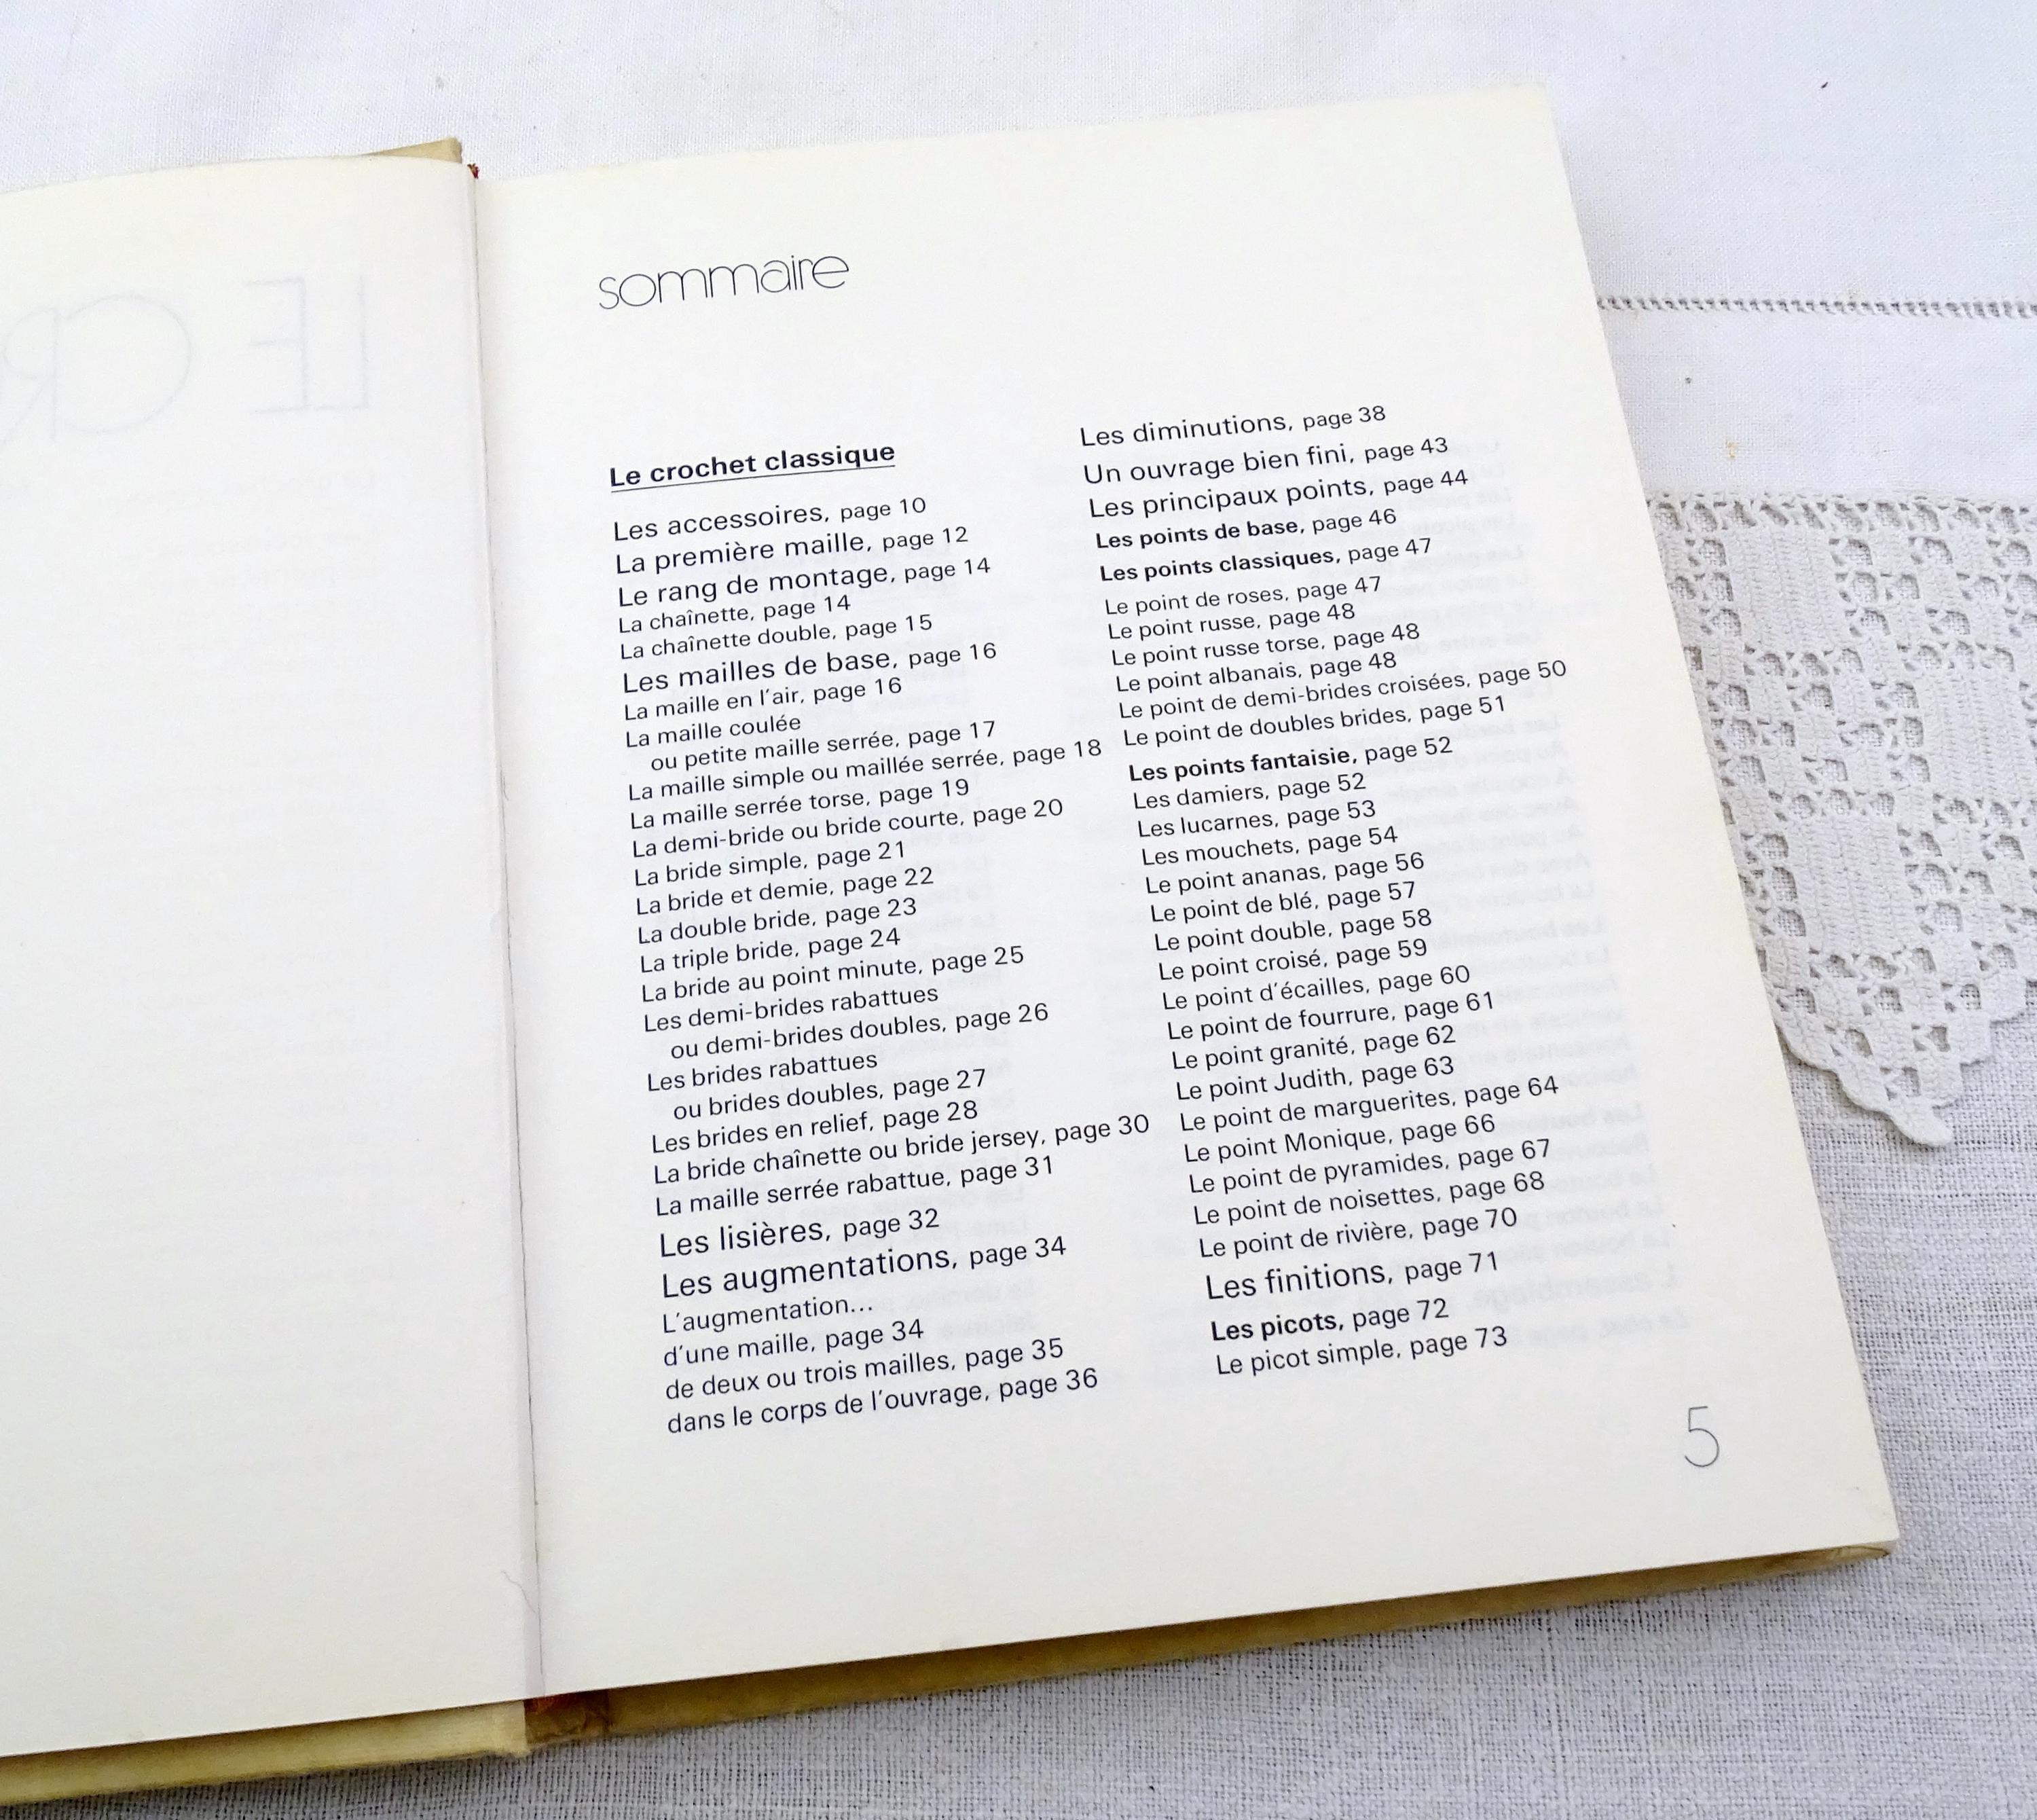 LE CR
sommaire
Le crochet classique
Les accessoires, page 10
La première maille, page 12
Le rang de montage, page 14
La chaînette, page 14
La chaînette double, page 15
Les mailles de base, page 16
La maille en l'air, page 16
La maille coulée
ou petite maille serrée, page 17
La maille simple ou maillée serrée, page 18
La maille serrée torse, page 19
La demi-bride ou bride courte, page 20
La bride simple, page 21
La bride et demie, page 22
La double bride, page 23
La triple bride, page 24
La bride au point minute, page 25
Les demi-brides rabattues
ou demi-brides doubles, page 26
Les brides rabattues
ou brides doubles, page 27
Les brides en relief, page 28
La bride chaînette ou bride jersey, page 30
La maille serrée rabattue, page 31
Les lisières, page 32
Les augmentations, page 34
L'augmentation...
d'une maille, page 34
de deux ou trois mailles, page 35
dans le corps de l'ouvrage, page 36
Les diminutions, page 38
Un ouvrage bien fini, page 43
Les principaux points, page 44
Les points de base, page 46
Les points classiques, page 47
Le point de roses, page 47
Le point russe, page 48
Le point russe torse, page 48
Le point albanais, page 48
Le point de demi-brides croisées, page 50
Le point de doubles brides, page 51
Les points fantaisie, page 52
Les damiers, page 52
Les lucarnes, page 53
Les mouchets, page 54
Le point ananas, page 56
Le point de blé, page 57
Le point double, page 58
Le point croisé, page 59
Le point d'écailles, page 60
Le point de fourrure, page 61
Le point granité, page 62
Le point Judith, page 63
Le point de marguerites, page 64
Le point Monique, page 66
Le point de pyramides, page 67
Le point de noisettes, page 68
Le point de rivière, page 70
Les finitions, page 71
Les picots, page 72
Le picot simple, page 73
5